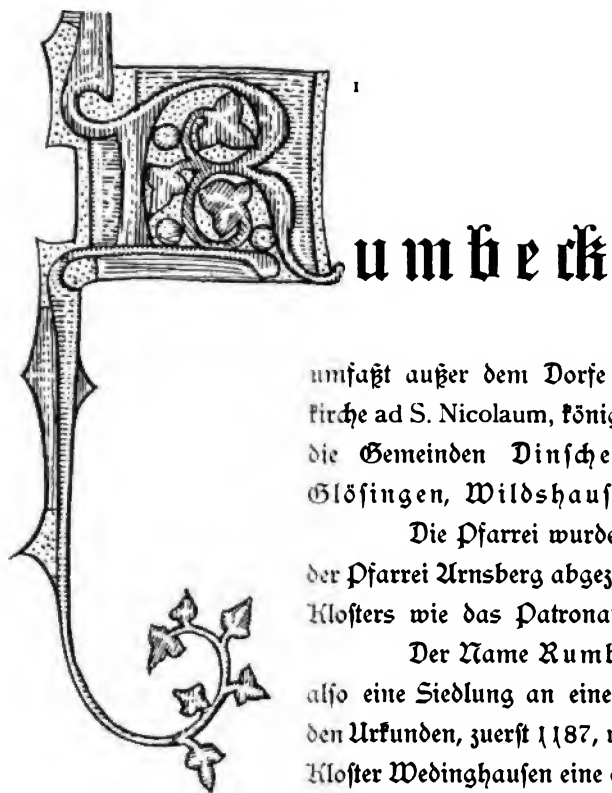 1
Rumbeck
umfaßt außer dem Dorfe
kirche ad S. Nicolaum, könig
die Gemeinden Dinsche
Glösingen, Wildshaus
Die Pfarrei wurde
der Pfarrei Arnsberg abgez
Klosters wie das Patrona
Der Name Rumb
also eine Siedlung an eine
den Urkunden, zuerst 1187, 
Kloster Wedinghausen eine